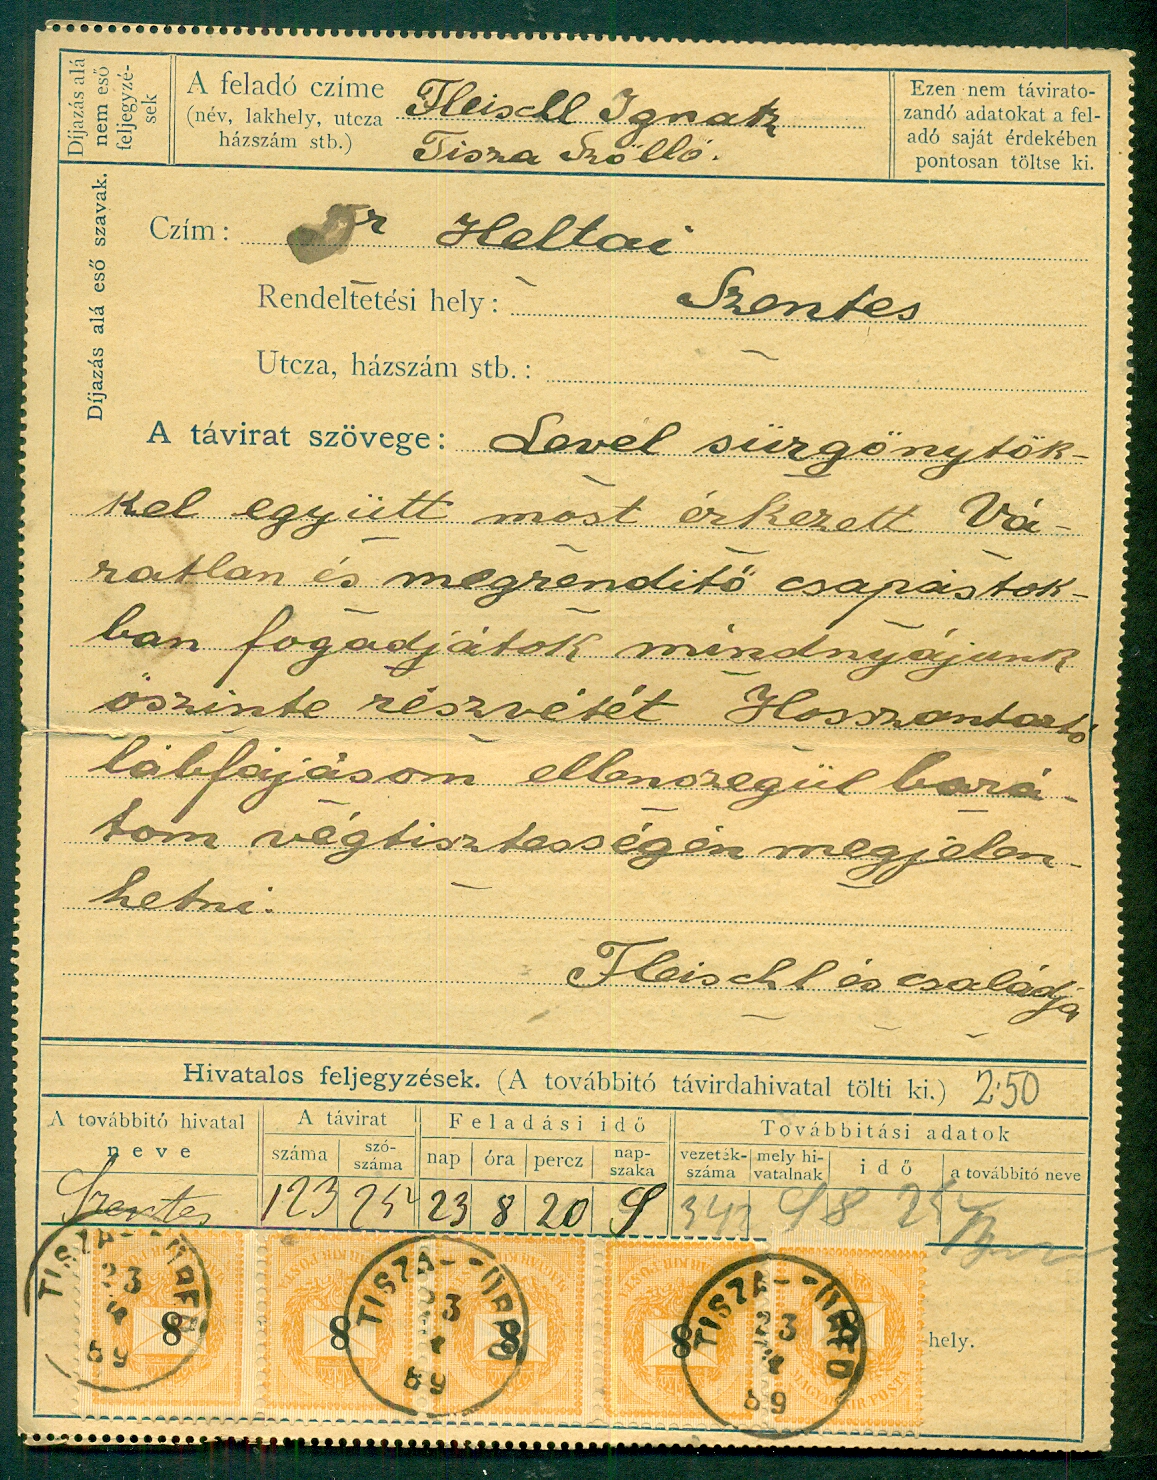 Díjazás alá
nem eső
feljegyzé-
sek
A feladó czíme
(név, lakhely, utcza
házszám stb.)
Fleischl Ignatz
Tisza Szöllö.
Ezen nem távirato-
zandó adatokat a fel-
adó saját érdekében
pontosan töltse ki.
Díjazás alá eső szavak.
Czím: Dr Heltai
Rendeltetési hely: Szentes
Utcza, házszám stb.:
A távirat szövege: Levél sürgönytök-
kel együtt most érkezett Vá-
ratlan és megrenditő csapástok-
ban fogadjátok mindnyájunk
őszinte részvétét Hosszantartó
lábfájásom ellenszegül bará-
tom végtisztességén megjelen-
hetni.
Fleischl és családja
Hivatalos feljegyzések. (A továbbitó távirdahivatal tölti ki.) 2·50
A továbbitó hivatal
neve
A távirat
száma
szó-
száma
Feladási idő
nap
óra
percz
nap-
szaka
Továbbitási adatok
vezeték-
száma
mely hi-
vatalnak
idő
a továbbitó neve
Szentes 123 23 8 20
8 8 8 8 8
MAGYAR KIR POSTA
TISZA--ÜRED
23
4
89
TISZA--ÜRED
23
4
89
TISZA--ÜRED
23
4
89
hely.